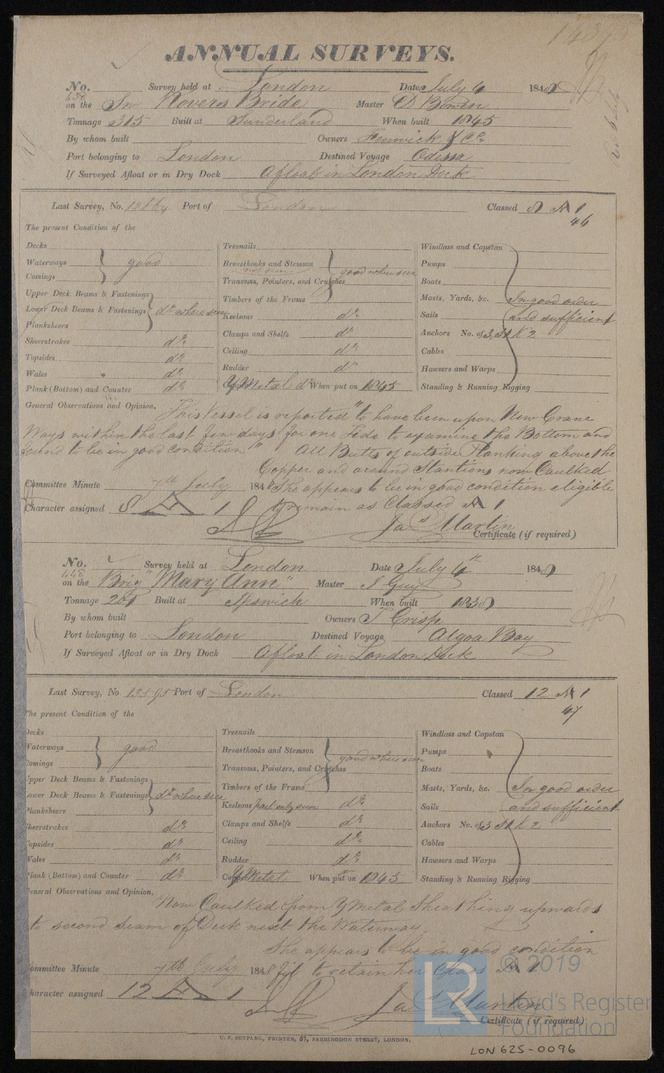 ANNUAL SURVEYS.
No. Survey held at London Date July 6 184
on the Bride Master
Tonnage 315 Built at Sunderland When built 1845
By whom built Owners Fenwick & Co
Port belonging to London Destined Voyage Odessa
If Surveyed Afloat or in Dry Dock Afloat in London Dock
Last Survey, No. Port of London Classed 8 A 1
46
The present Condition of the
Decks Treenails Windlass and Capstan
Waterways good Breasthooks and Stemson good where seen Pumps
Comings Transoms, Pointers, and Crutches Boats
Upper Deck Beams & Fastenings Timbers of the Frame Masts, Yards, &c. In good order
Lower Deck Beams & Fastenings do where seen Keelsons do Sails and sufficient
Planksheers Clamps and Shelfs do Anchors No. of
Sheerstrakes do Ceiling do Cables
Topsides do Rudder do Hawsers and Warps
Wales do
Plank (Bottom) and Counter do Y Metal When put on 1845 Standing & Running Rigging
General Observations and Opinion, This Vessel is reported "to have been upon New Crane
Ways within the last few days for one Tide to examine the Bottom and
found to be in good condition" All Butts of outside Planking above the
Copper and around Stantions now Caulked
Committee Minute 7th July 184 She appears to be in good condition eligible
Character assigned 8 A 1 to remain as Classed A 1
Jas Martin
Certificate (if required)
No. 448 Survey held at London Date July 6th 184
on the Brig "Mary Ann" Master J Guy
Tonnage Built at Ipswich When built
By whom built Owners T Crisp
Port belonging to London Destined Voyage Algoa Bay
If Surveyed Afloat or in Dry Dock Afloat in London Dock
Last Survey, No. 12595 Port of London Classed 12 A 1
47
The present Condition of the
Decks Treenails Windlass and Capstan
Waterways good Breasthooks and Stemson good where seen Pumps
Comings Transoms, Pointers, and Crutches Boats
Upper Deck Beams & Fastenings Timbers of the Frame Masts, Yards, &c. In good order
Lower Deck Beams & Fastenings do where seen Keelsons part only seen do Sails and sufficient
Planksheers Clamps and Shelfs do Anchors No. of
Sheerstrakes do Ceiling do Cables
Topsides do Rudder do Hawsers and Warps
Wales do
Plank (Bottom) and Counter do Y Metal When put on 1845 Standing & Running Rigging
General Observations and Opinion, Now Caulked from Y Metal Sheathing upwards
to second seam of Deck next the Waterway
She appears to be in good condition
Committee Minute 7th July 184 fit to retain her Class A 1
Character assigned 12 A 1 Jas Martin
Certificate (if required)
LR © 2019 Lloyd's Register Foundation
LON 625-0096